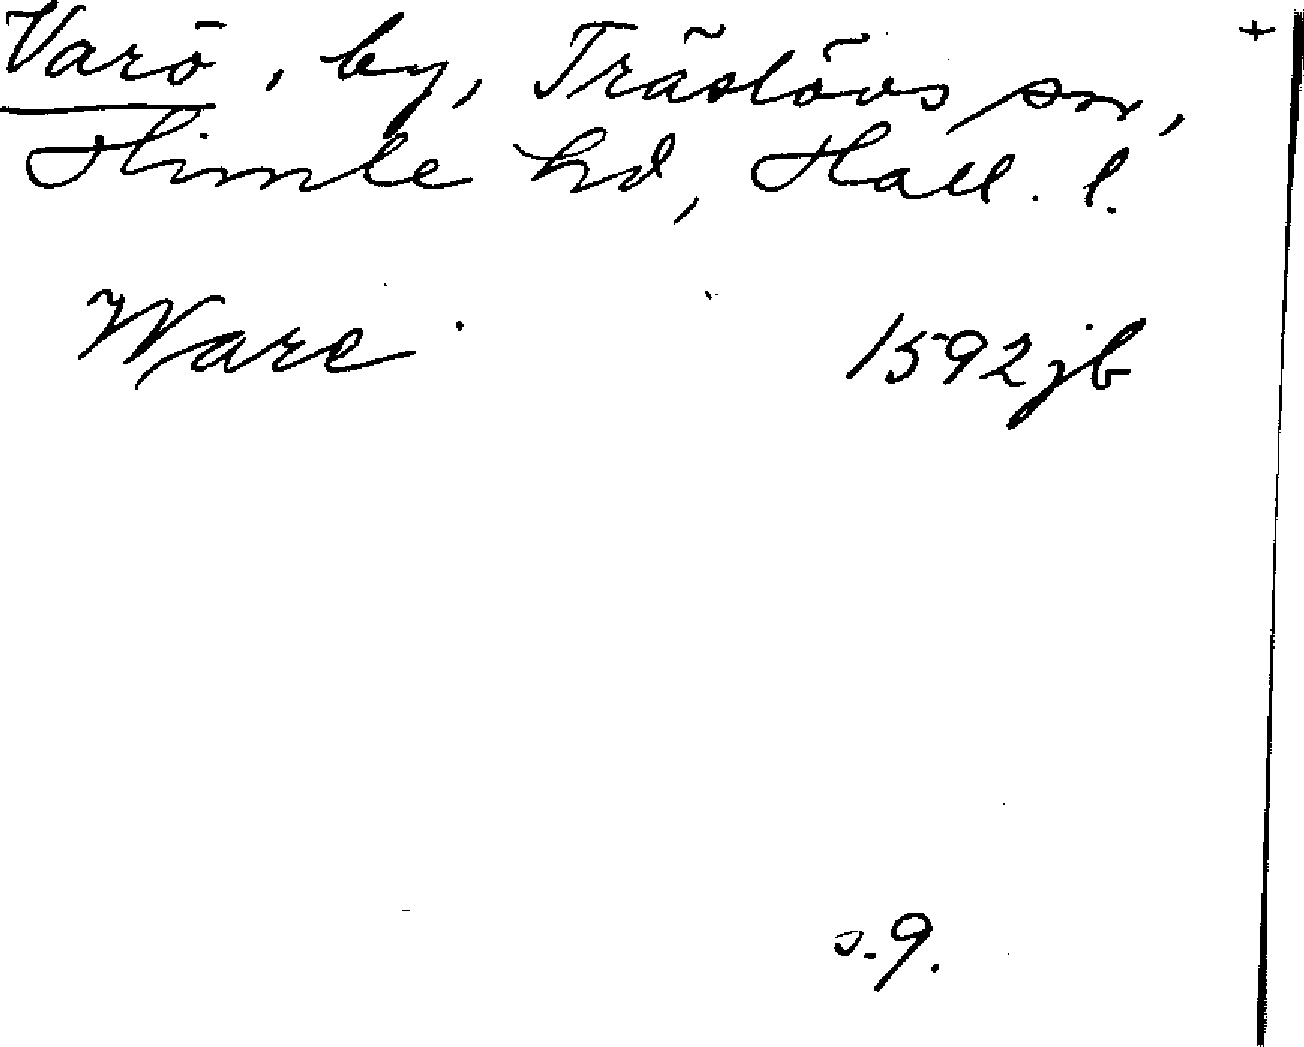 Varö, by, Träslövs sn, +
Himle hd, Hall. l.
Ware 1592 jb
s. 9.